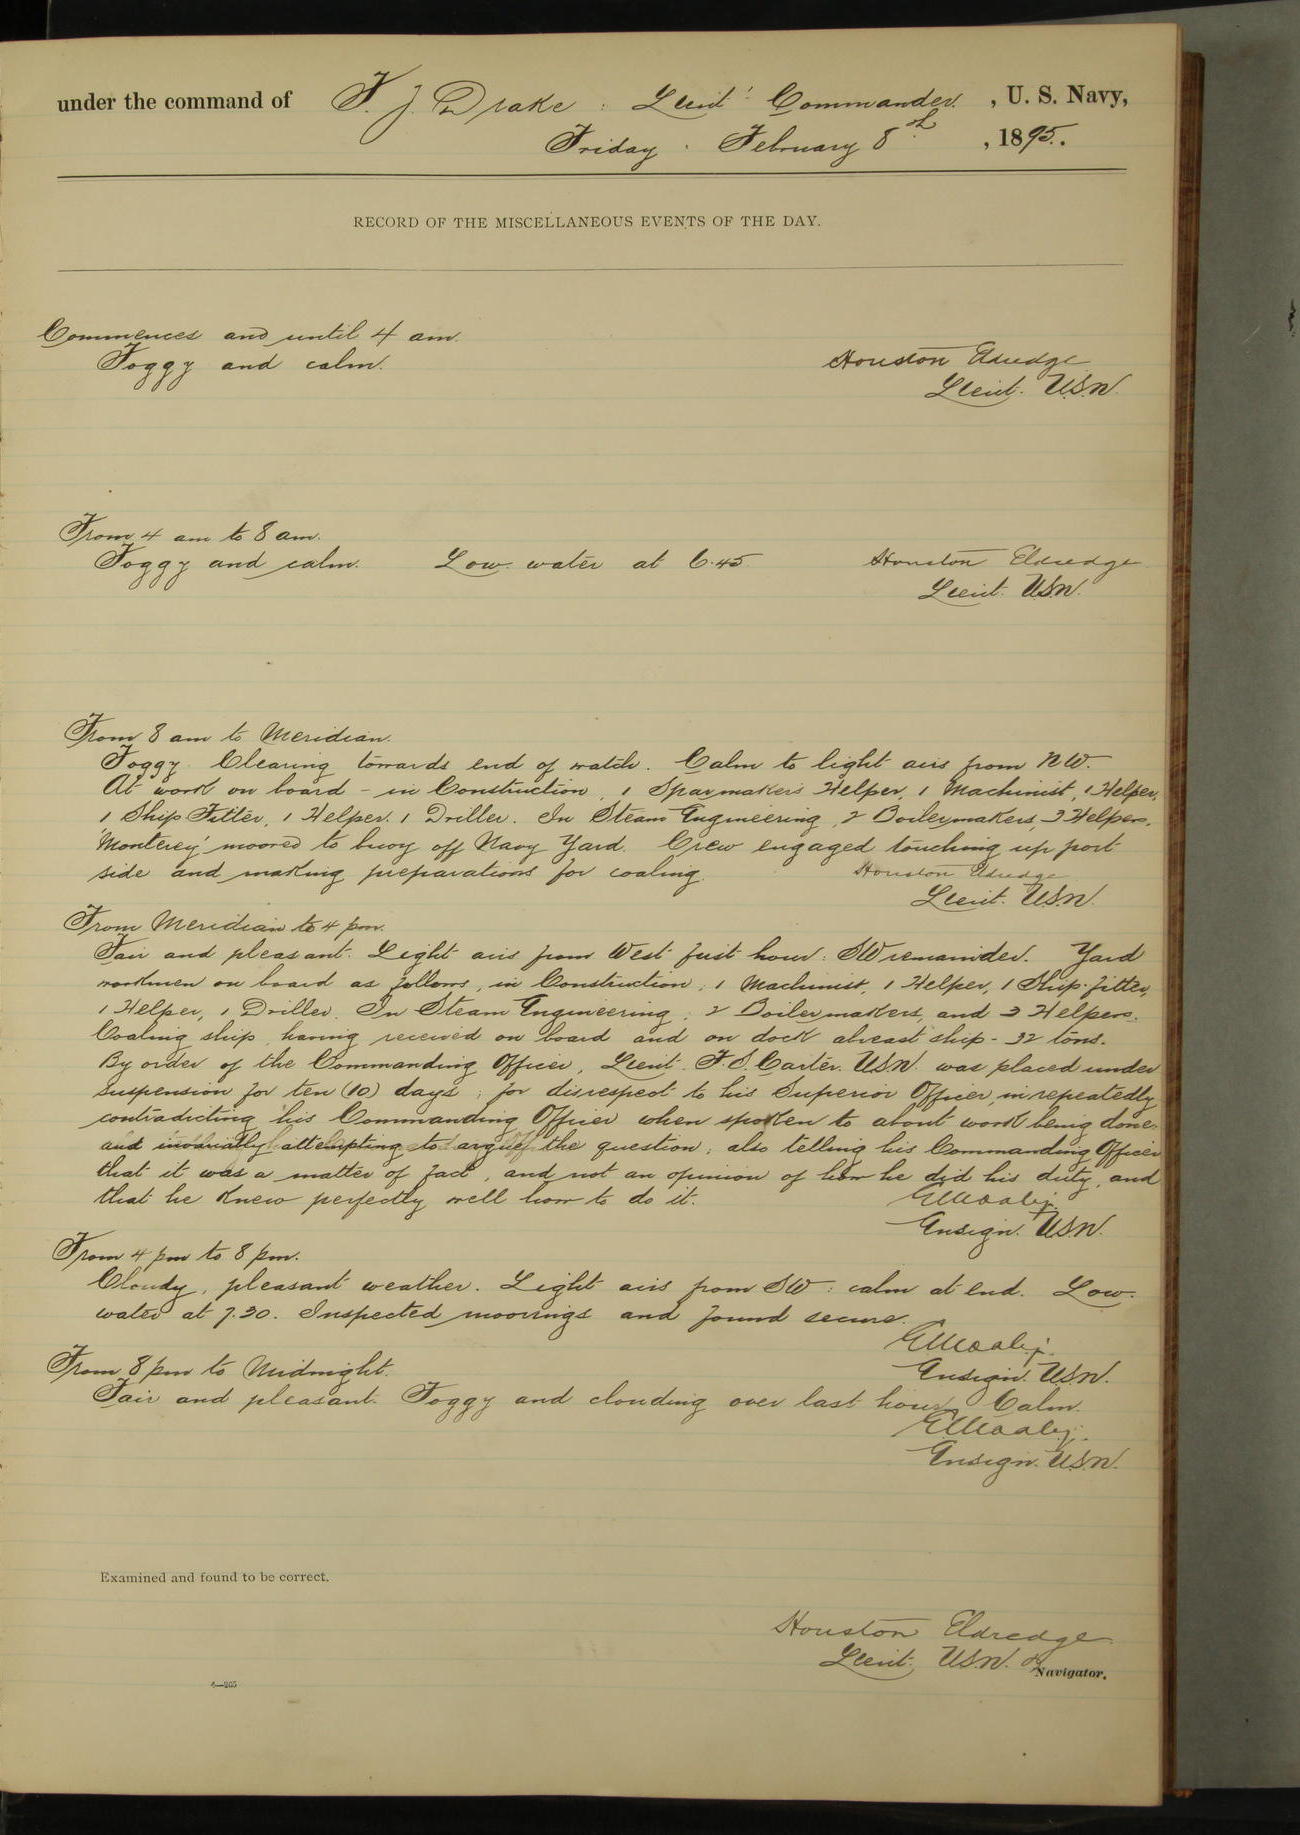 under the command of F. J. Drake : Lieut. Commander. , U. S. Navy,
Friday . February 8th , 1895.
RECORD OF THE MISCELLANEOUS EVENTS OF THE DAY.
Commences and until 4 am.
Foggy and calm.
Houston Eldredge
Lieut. U.S.N.
From 4 am to 8 am.
Foggy and calm. Low water at 6.45
Houston Eldredge
Lieut. U.S.N.
From 8 am to Meridian.
Foggy. Clearing towards end of watch. Calm to light airs from NW.
At work on board - in Construction, 1 Sparmakers Helper, 1 Machinist, 1 Helper,
1 Ship Fitter, 1 Helper. 1 Driller. In Steam Engineering, 2 Boilermakers, 3 Helpers.
"Monterey" moored to buoy off Navy Yard. Crew engaged touching up port
side and making preparations for coaling.
Houston Eldredge
Lieut. U.S.N.
From Meridian to 4 pm.
Fair and pleasant. Light airs from West first hour: SW remainder. Yard
workmen on board as follows, in Construction, 1 Machinist, 1 Helper, 1 Ship-fitter,
1 Helper, 1 Driller. In Steam Engineering, 2 Boilermakers, and 3 Helpers.
Coaling ship, having received on board and on dock abreast ship - 32 tons.
By order of the Commanding Officer, Lieut. F. S. Carter. U.S.N. was placed under
suspension for ten (10) days; for disrespect to his Superior Officer, in repeatedly
contradicting his Commanding Officer when spoken to about work being done
and attempting to argue the question; also telling his Commanding Officer
that it was a matter of fact, and not an opinion of how he did his duty, and
that he knew perfectly well how to do it.
Ensign. U.S.N.
From 4 pm to 8 pm.
Cloudy, pleasant weather. Light airs from SW: calm at end. Low
water at 7.30. Inspected moorings and found secure.
Ensign. U.S.N.
From 8 pm to Midnight.
Fair and pleasant. Foggy and clouding over last hour. Calm.
Ensign. U.S.N.
Examined and found to be correct.
Houston Eldredge
Lieut. U.S.N. &
Navigator.